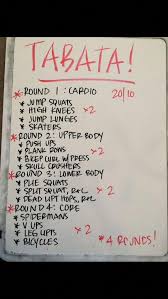 TABATA!
* ROUND 1: CARDIO 20/10
* JUMP SQUATS
* HIGH KNEES × 2
* JUMP LUNGES
* SKATERS
* ROUND 2: UPPER BODY
* PUSH UPS
* PLANK ROWS × 2
* BICEP CURL W/ PRESS
* SKULL CRUSHERS
* ROUND 3: LOWER BODY
* PLIE SQUATS
* SPLIT SQUAT, R+L × 2
* DEAD LIFT HOPS, R+L
* ROUND 4: CORE
* SPIDERMANS
* V UPS × 2
* LEG LIFTS
* BICYCLES * 4 ROUNDS!